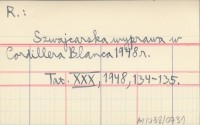 R.:
Szwajcarska wyprawa w
Cordillera Blanca 1948 r.
Tat. XXX, 1948, 134-135.